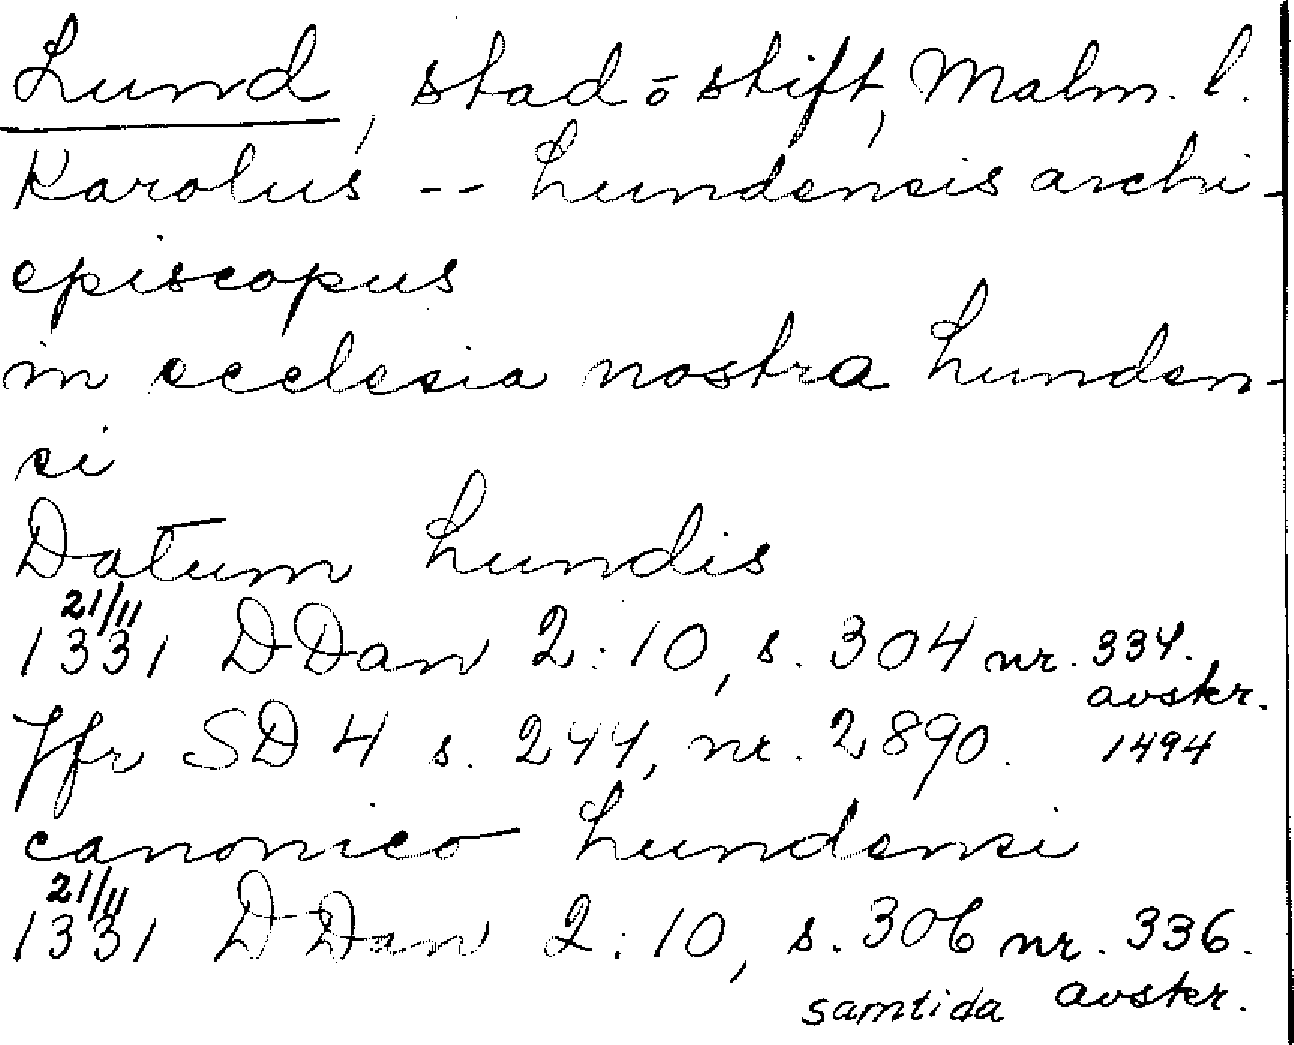 Lund, stad o stift, Malm. l.
Karolus -- Lundensis archi-
episcopus
in ecclesia nostra Lunden-
si
Datum Lundis
21/11
1331 DDan 2:10, s. 304 nr. 334.
avskr.
Jfr SD 4 s. 244, nr. 2890. 1494
canonico Lundensi
21/11
1331 DDan 2:10, s. 306 nr. 336.
samtida avskr.